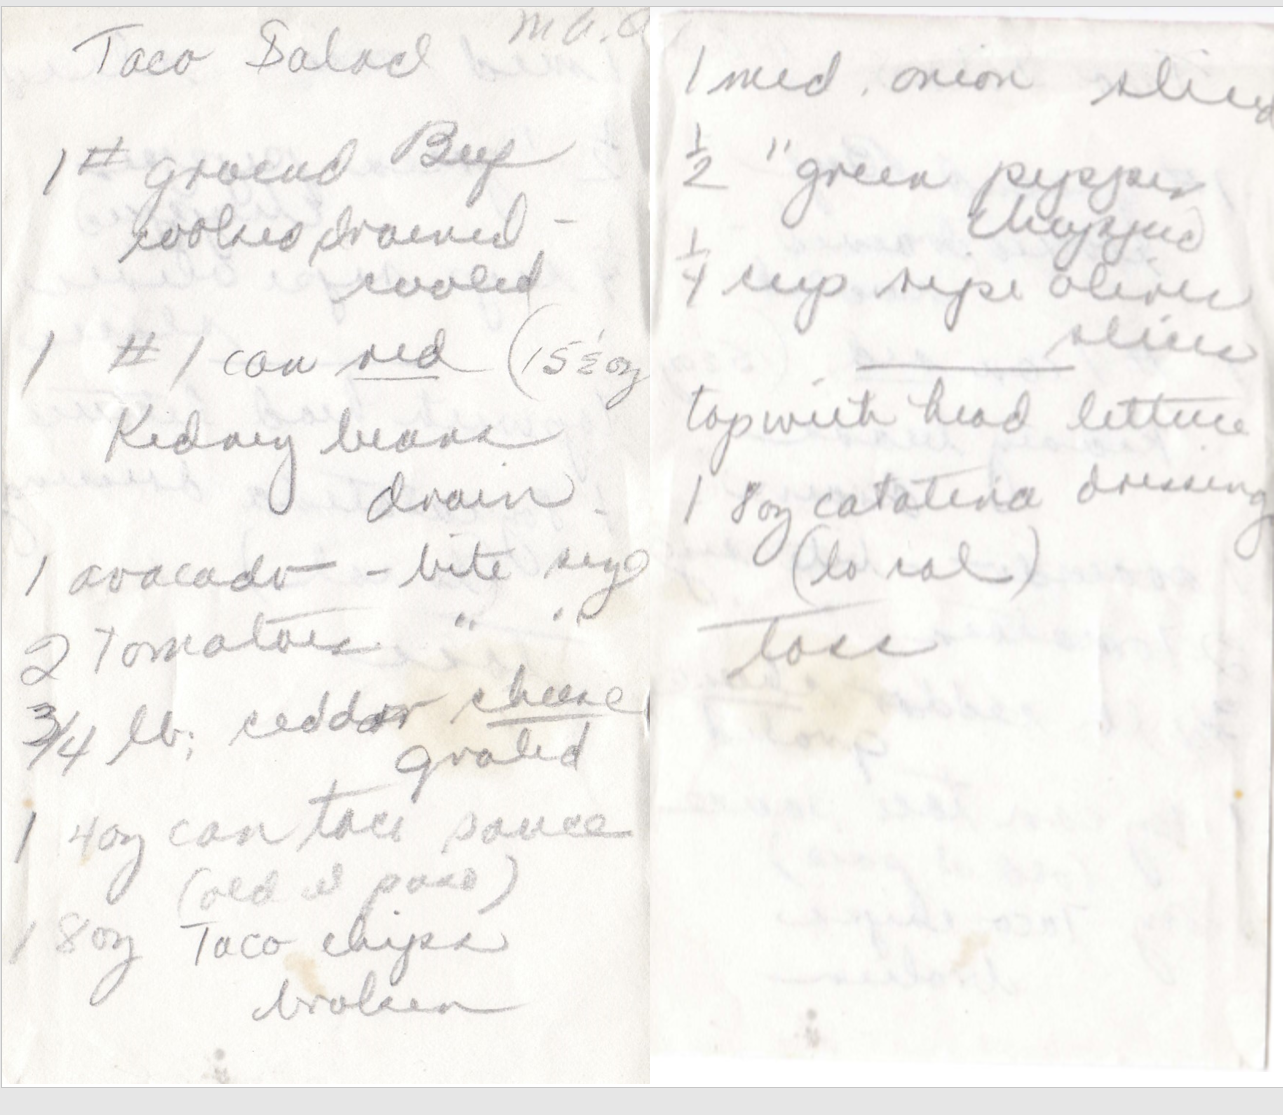 Taco Salad
1 # ground Beef
cooked drained -
cooled
1 #1 can red (15½oz
Kidney beans
drain
1 avacado - bite size
2 Tomatoes " "
3/4 lb. ceddar cheese
grated
1 4oz can taco sauce
(old el paso)
1 8oz Taco chips
broken
1 med. onion sliced
1/2 " green pepper
chopped
1/4 cup ripe olives
slices
top with head lettuce
1 8oz catatina dressing
(lo cal)
toss